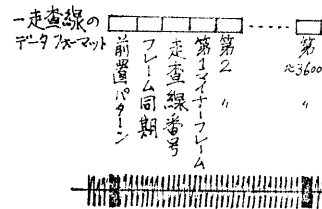 一走査線の
データフォーマット
前置パターン
フレーム同期
走査線番号
第1マイナーフレーム
第2 〃
第 3600 〃